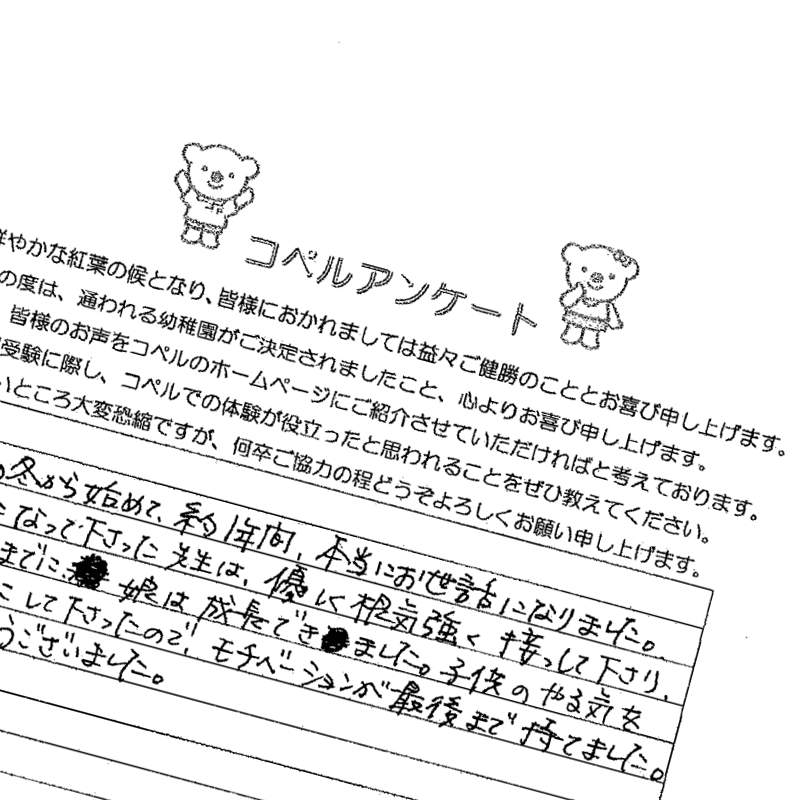 コペルアンケート
やかな紅葉の候となり、皆様におかれましては益々ご健勝のこととお喜び申し上げます。
の度は、通われる幼稚園がご決定されましたこと、心よりお喜び申し上げます。
皆様のお声をコペルのホームページにご紹介させていただければと考えております。
受験に際し、コペルでの体験が役立ったと思われることをぜひ教えてください。
いところ大変恐縮ですが、何卒ご協力の程どうぞよろしくお願い申し上げます。
の冬から始めて、約1年間、本当にお世話になりました。
になって下さった先生は、優しく根気強く接して下さり、
までに 娘は成長でき ました。子供のやる気を
にして下さったので、モチベーションが最後まで持てました。
うございました。